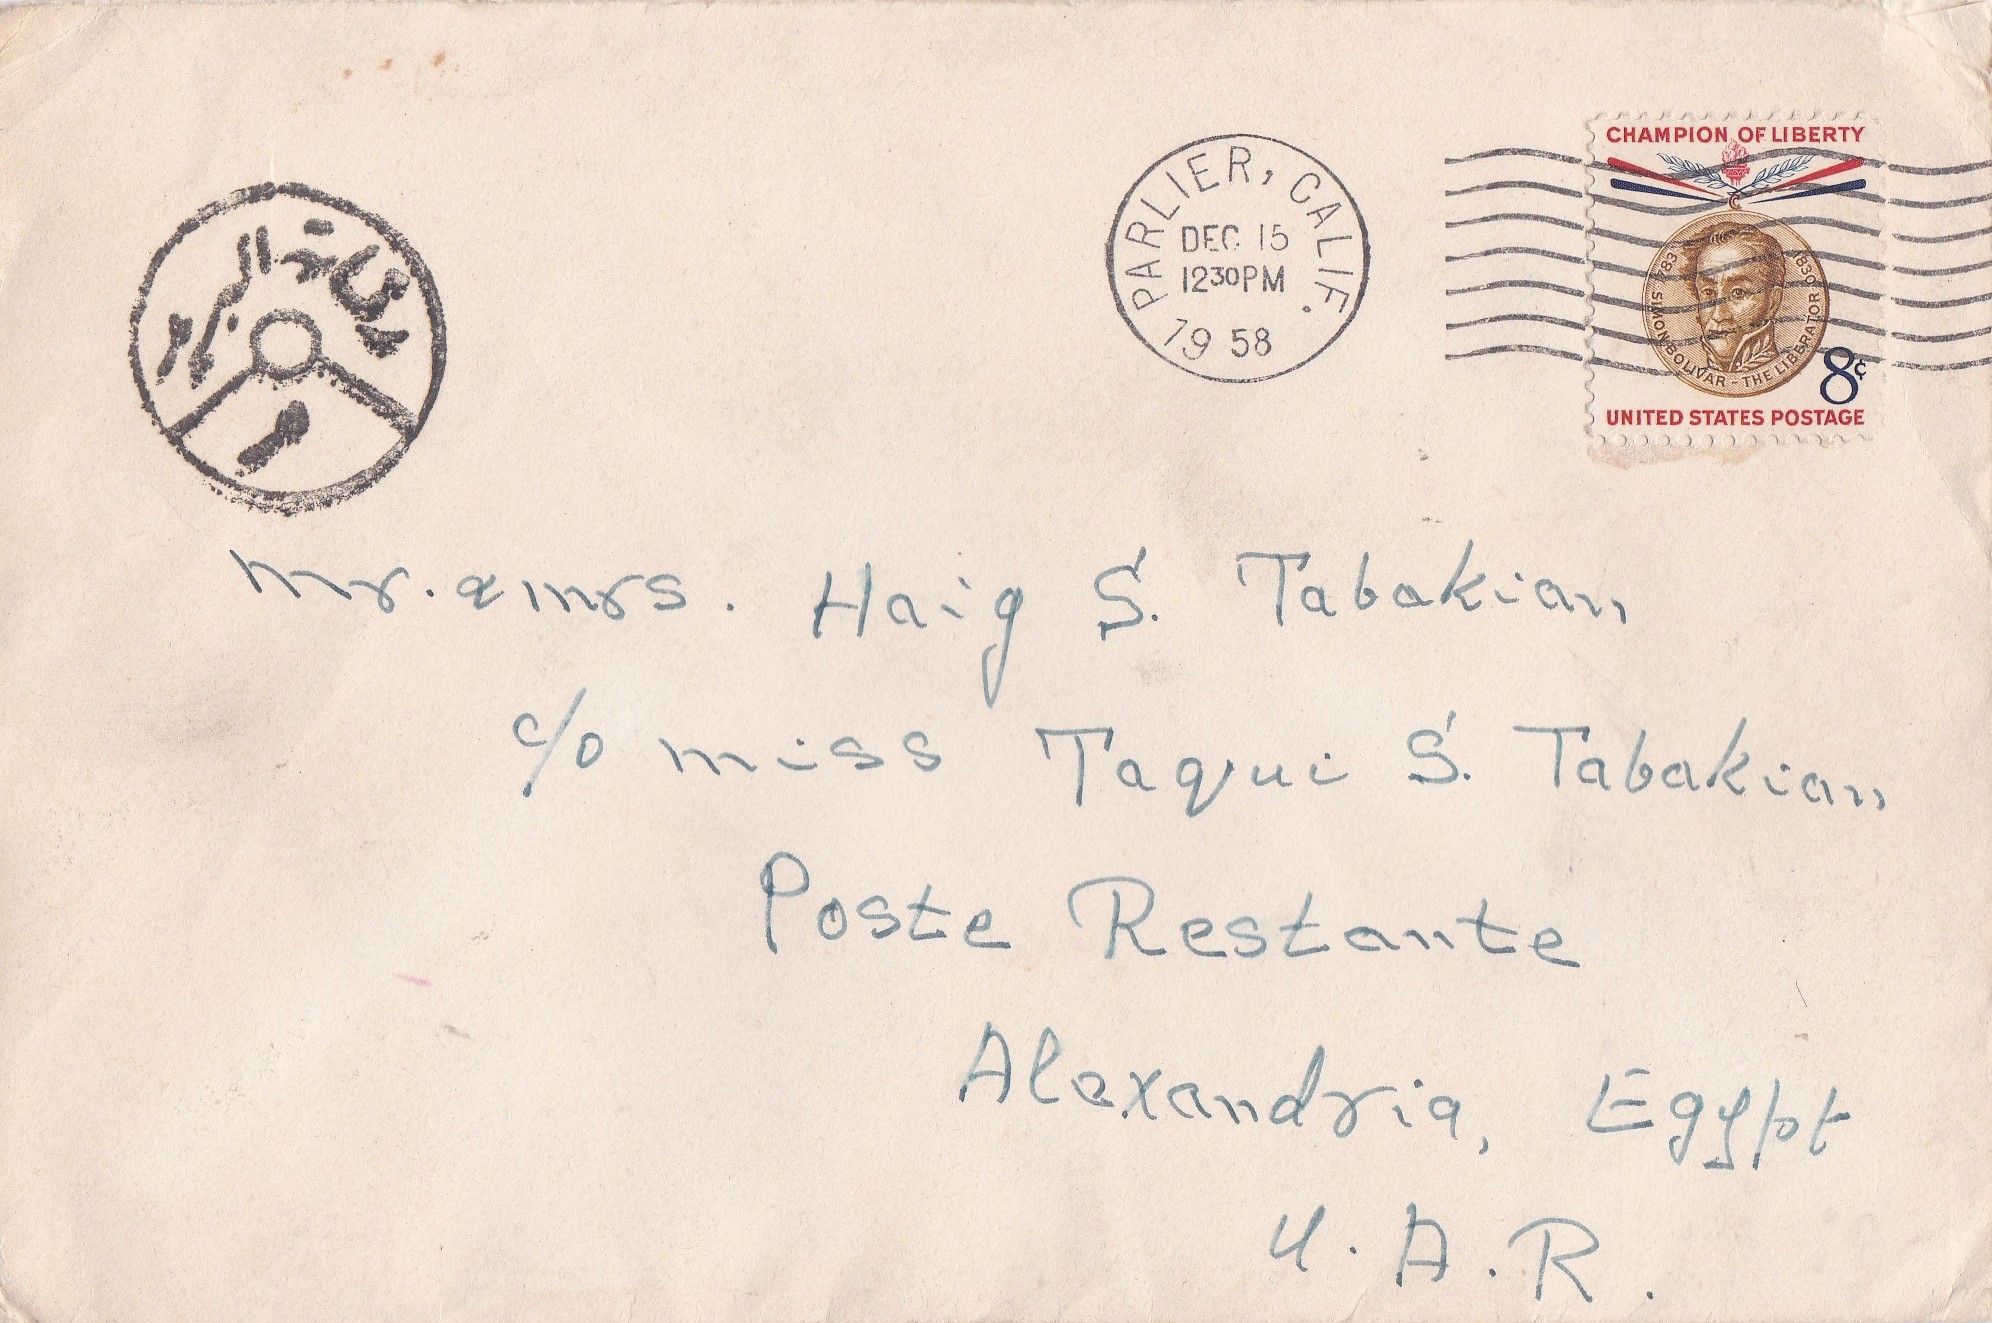 PARLIER, CALIF.
DEC 15
1230PM
1958
CHAMPION OF LIBERTY
1783 SIMON BOLIVAR - THE LIBERATOR 1830
8¢
UNITED STATES POSTAGE
Mr. & Mrs. Haig S. Tabakian
c/o Miss Taqui S. Tabakian
Poste Restante
Alexandria, Egypt
U. A. R.